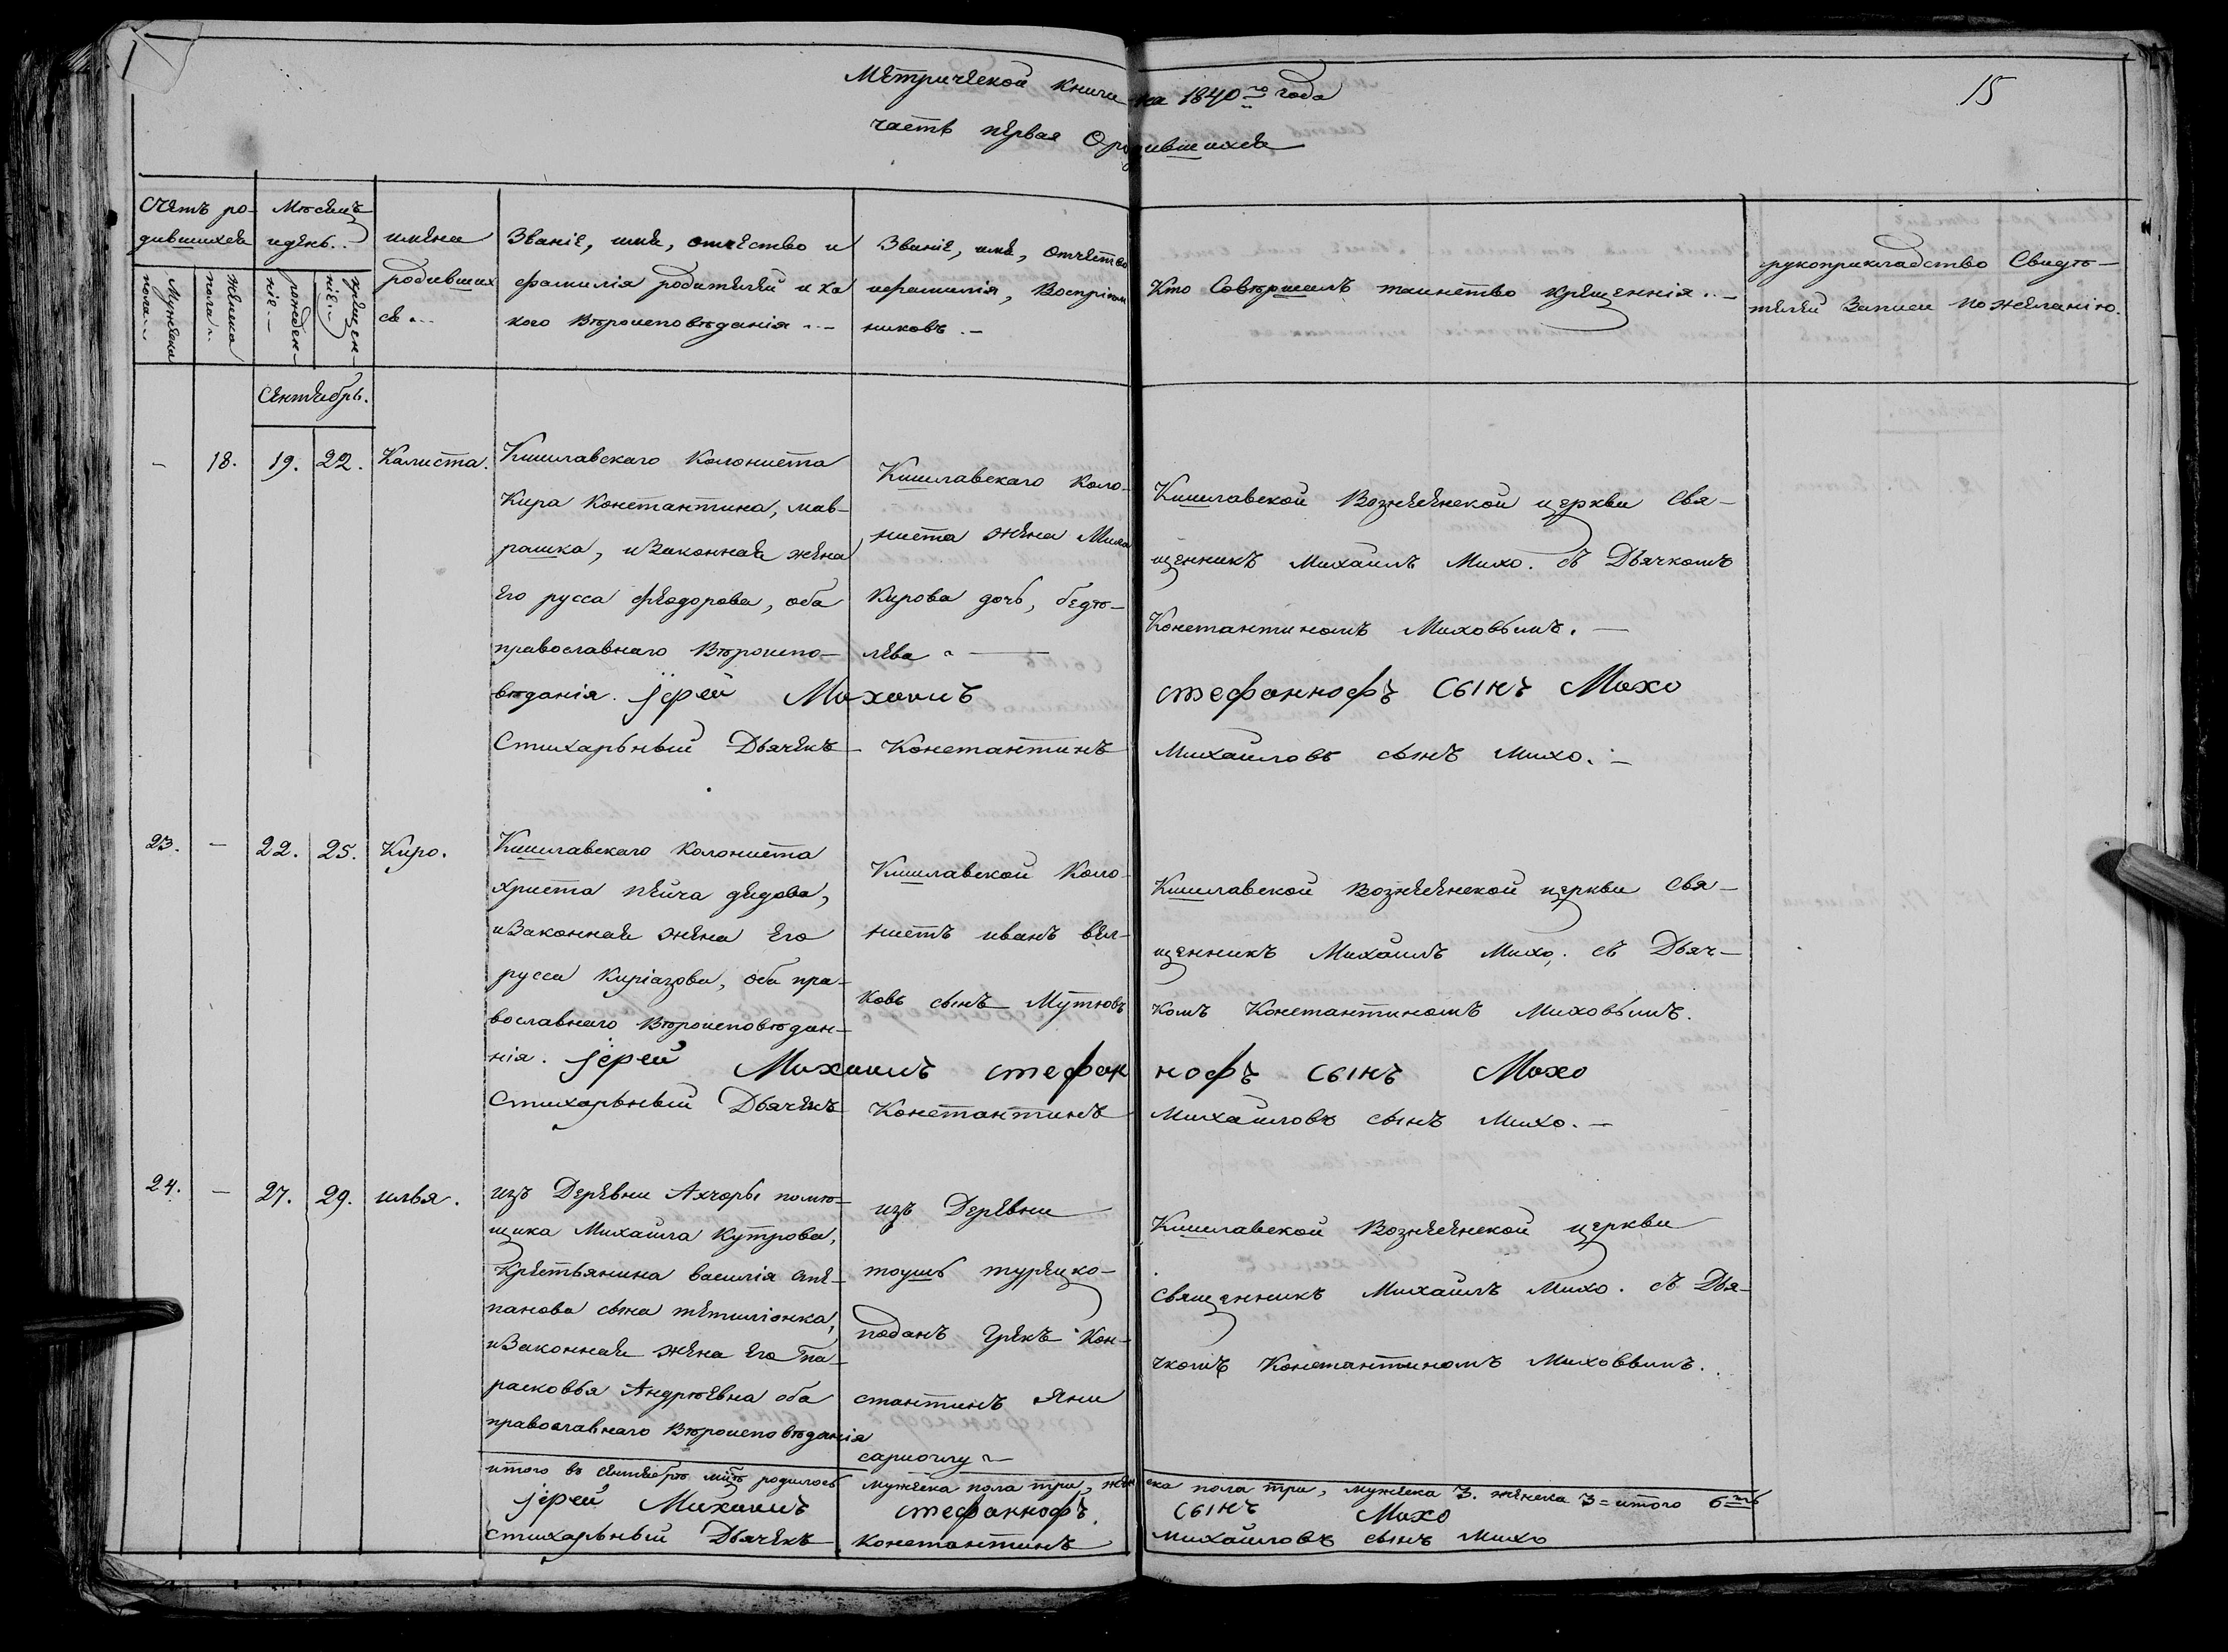 Метрической книги на 1840го года
15
часть первая О родившихся
Счетъ ро-
дившихся
Мѣсяцъ
и день..
имена
родивших
ся...
Званіе, имя, отчество и
фамилія родителей и ка
кого Вѣроисповѣданія..
Званіе, имя, Отчество
и фамилія, Воспріем
никовъ.-
Кто Совѣршилъ таинство крещеннія..-
рукоприкладство Свидѣ-
телей Записи По желанію.
Мужеска
пола..
женска
пола..
рожден-
ніе.-
крещен-
ніе.-
Сентябрь.
- 18. 19. 22. Калиста.
Кишлавскаго Колониста
Кира Константина, мав-
рашка, и Законная жена
Его русса Феодорова, оба
православнаго Вѣроиспо-
вѣданія.
Кишлавскаго Коло-
ниста жена Мила
Кирова дочь, бедѣ-
лева
Кишлавской Вознесенской церкви Свя-
щенникъ Михаилъ Михо. съ Дьячкомъ
Константиномъ Миховымъ.-
Јерей Михаилъ стефаннофъ сынъ Михо
Стихарьный Дьячекъ Константинъ Михаиловъ сынъ Михо.-
23. - 22. 25. Киро.
Кишлавскаго Колониста
Христа Пейча дедова,
и Законная жена Его
русса Киріазова, оба пра-
вославнаго Вѣроисповѣдан-
нія.
Кишлавской Коло-
нистъ иванъ вел-
ковъ сынъ Мутювъ
Кишлавской Вознесенской церкви Свя-
щенникъ Михаилъ Михо. съ Дьяч-
комъ Константиномъ Миховымъ.
Јерей Михаилъ стефаннофъ сынъ Михо
Стихарьный Дьячекъ Константинъ Михаиловъ сынъ Михо.-
24. - 27. 29. илья.
изъ Деревни Ахчоры помѣ-
щика Михаила Кутрова,
Крестьянина василія сте-
панова сына тетиліонка,
и Законная жена Его Па-
расковья Андрѣевна оба
православнаго Вѣроисповѣданія
изъ Деревни
тоушъ турецко-
поданъ Грекъ Кон-
стантинъ Яни
сариоглу
Кишлавской Вознесенской церкви
священникъ Михаилъ Михо. съ Дья-
чкомъ Константиномъ Миховымъ.
итого въ сентябрѣ мцѣ родилось мужеска пола три, женска пола три, мужеска 3. женска 3 = итого 6ть
Јерей Михаилъ стефаннофъ. сынъ Михо
стихарьный Дьячекъ константинъ михаиловъ сынъ Михо